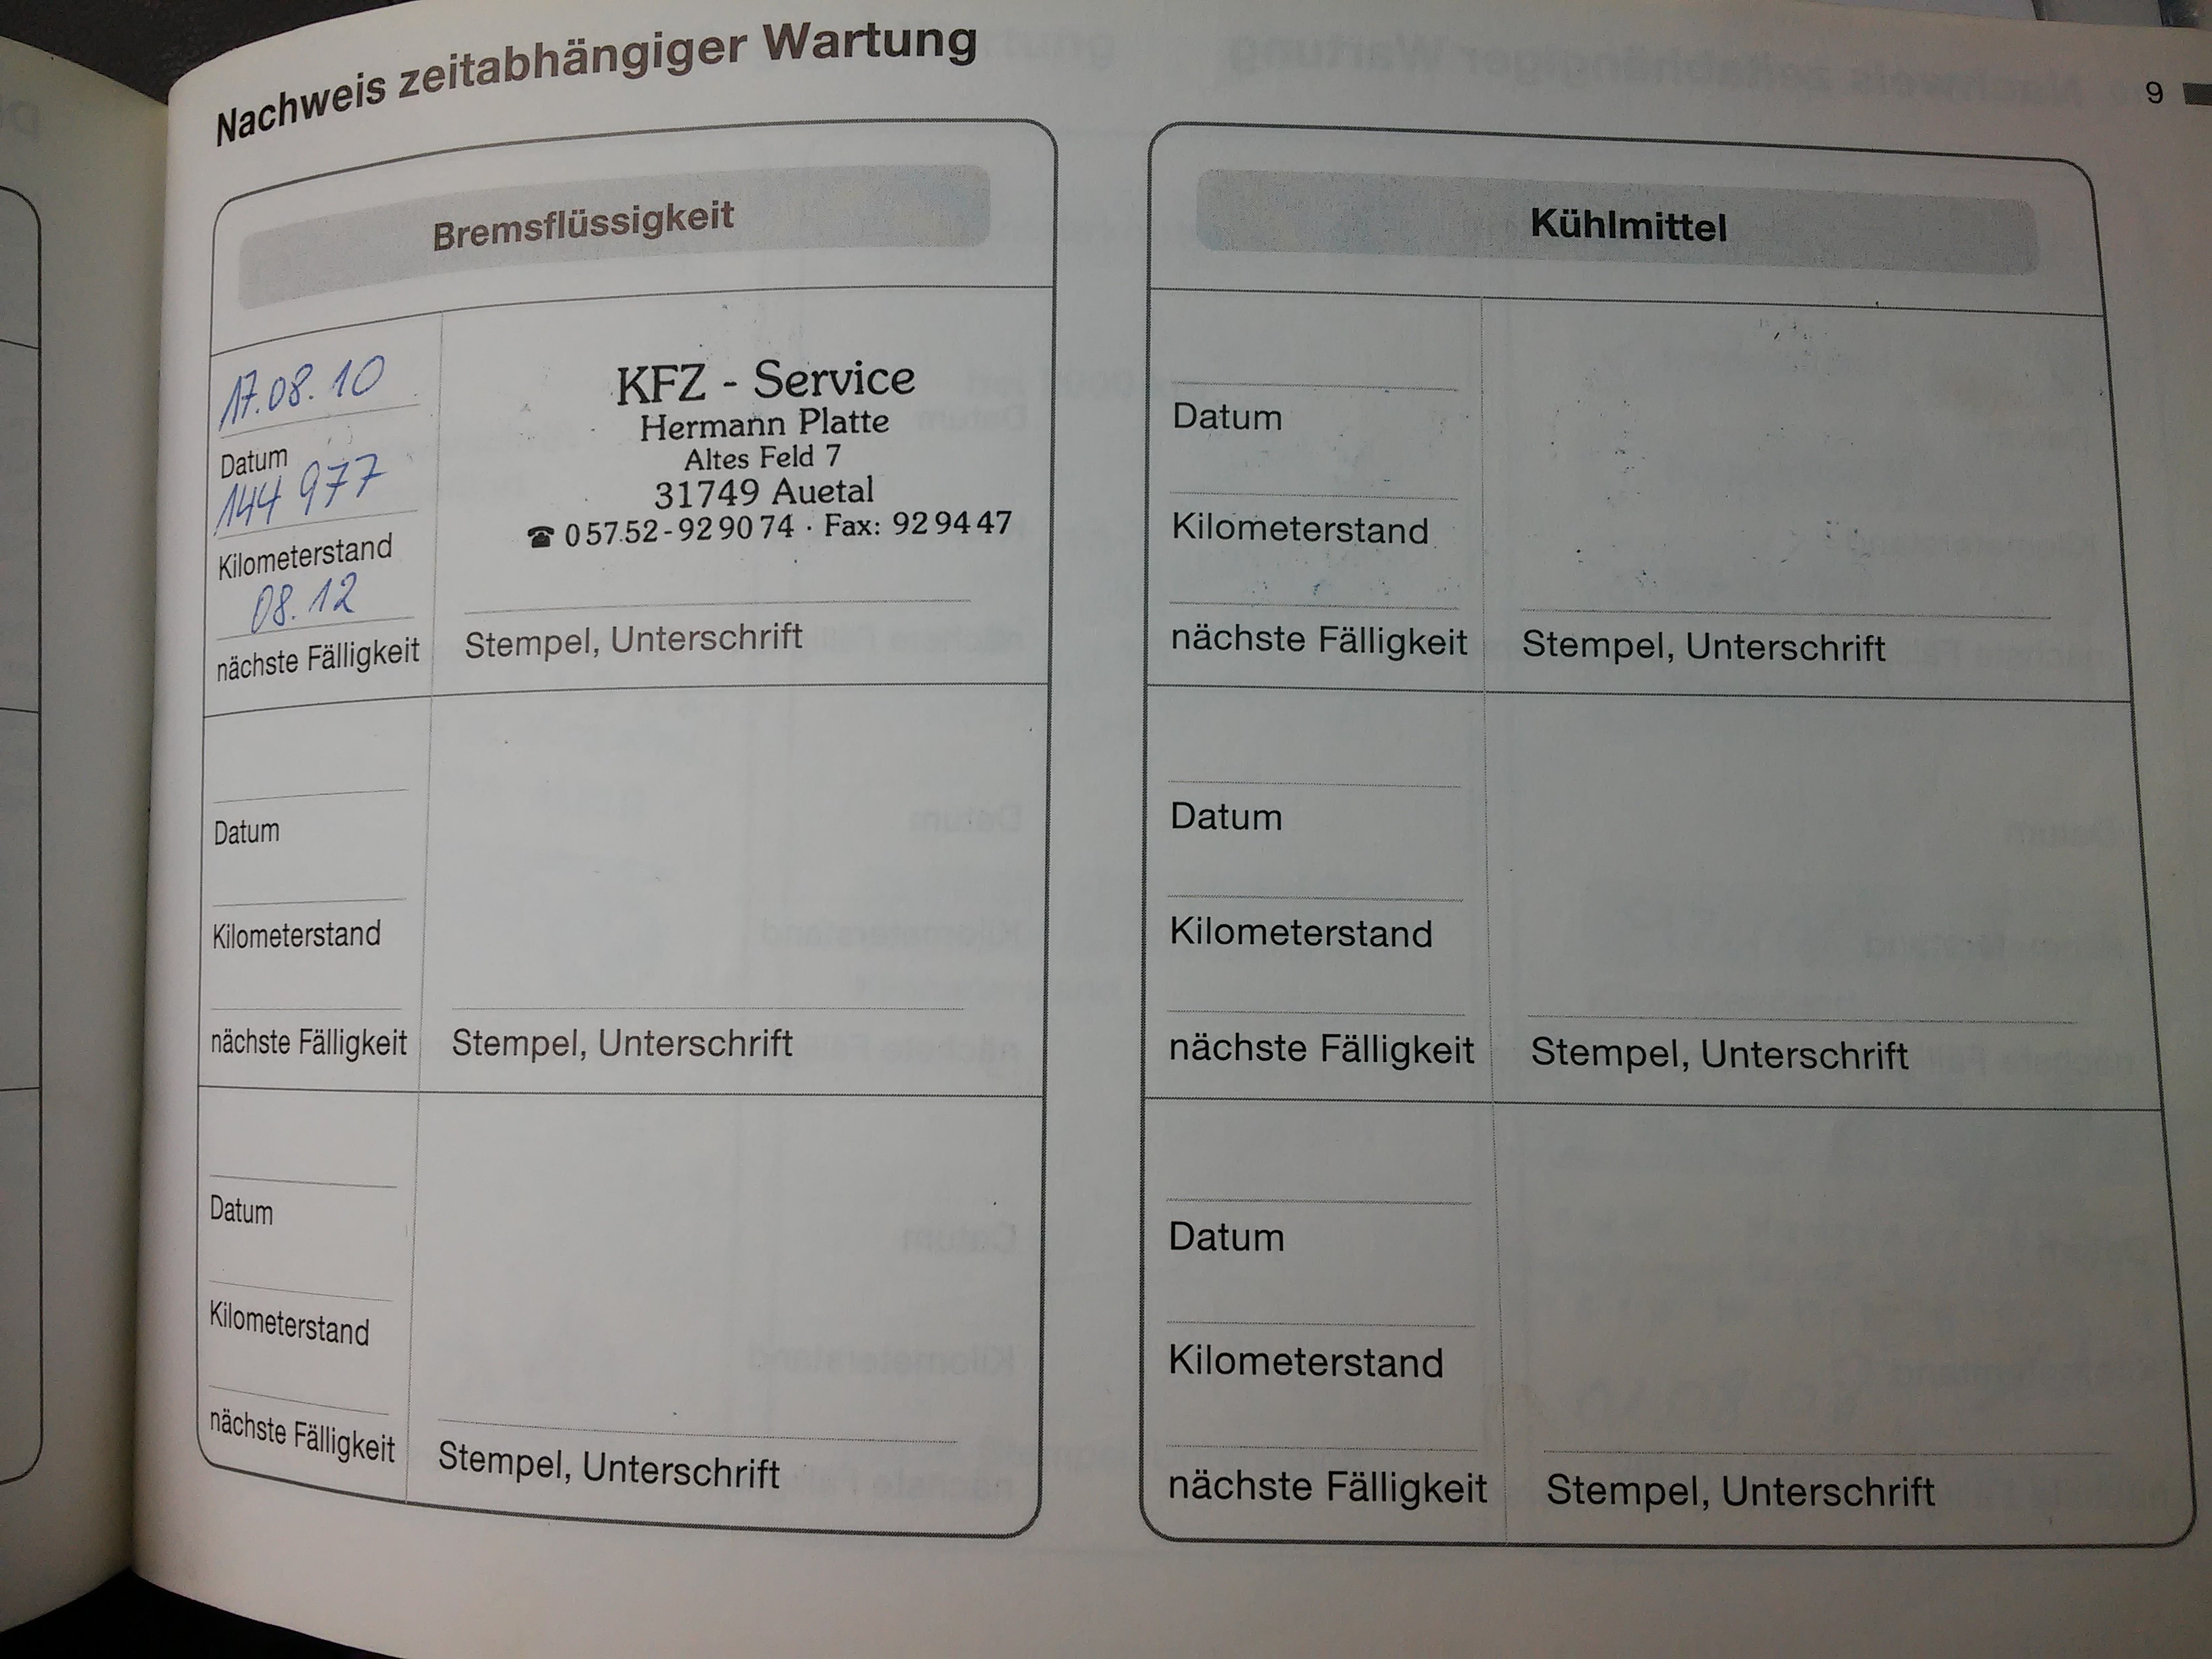 Nachweis zeitabhängiger Wartung
9
Bremsflüssigkeit
17.08.10
Datum
144 977
Kilometerstand
08.12
nächste Fälligkeit
KFZ - Service
Hermann Platte
Altes Feld 7
31749 Auetal
☎ 05752-929074 · Fax: 929447
Stempel, Unterschrift
Datum
Kilometerstand
nächste Fälligkeit
Stempel, Unterschrift
Datum
Kilometerstand
nächste Fälligkeit
Stempel, Unterschrift
Kühlmittel
Datum
Kilometerstand
nächste Fälligkeit
Stempel, Unterschrift
Datum
Kilometerstand
nächste Fälligkeit
Stempel, Unterschrift
Datum
Kilometerstand
nächste Fälligkeit
Stempel, Unterschrift